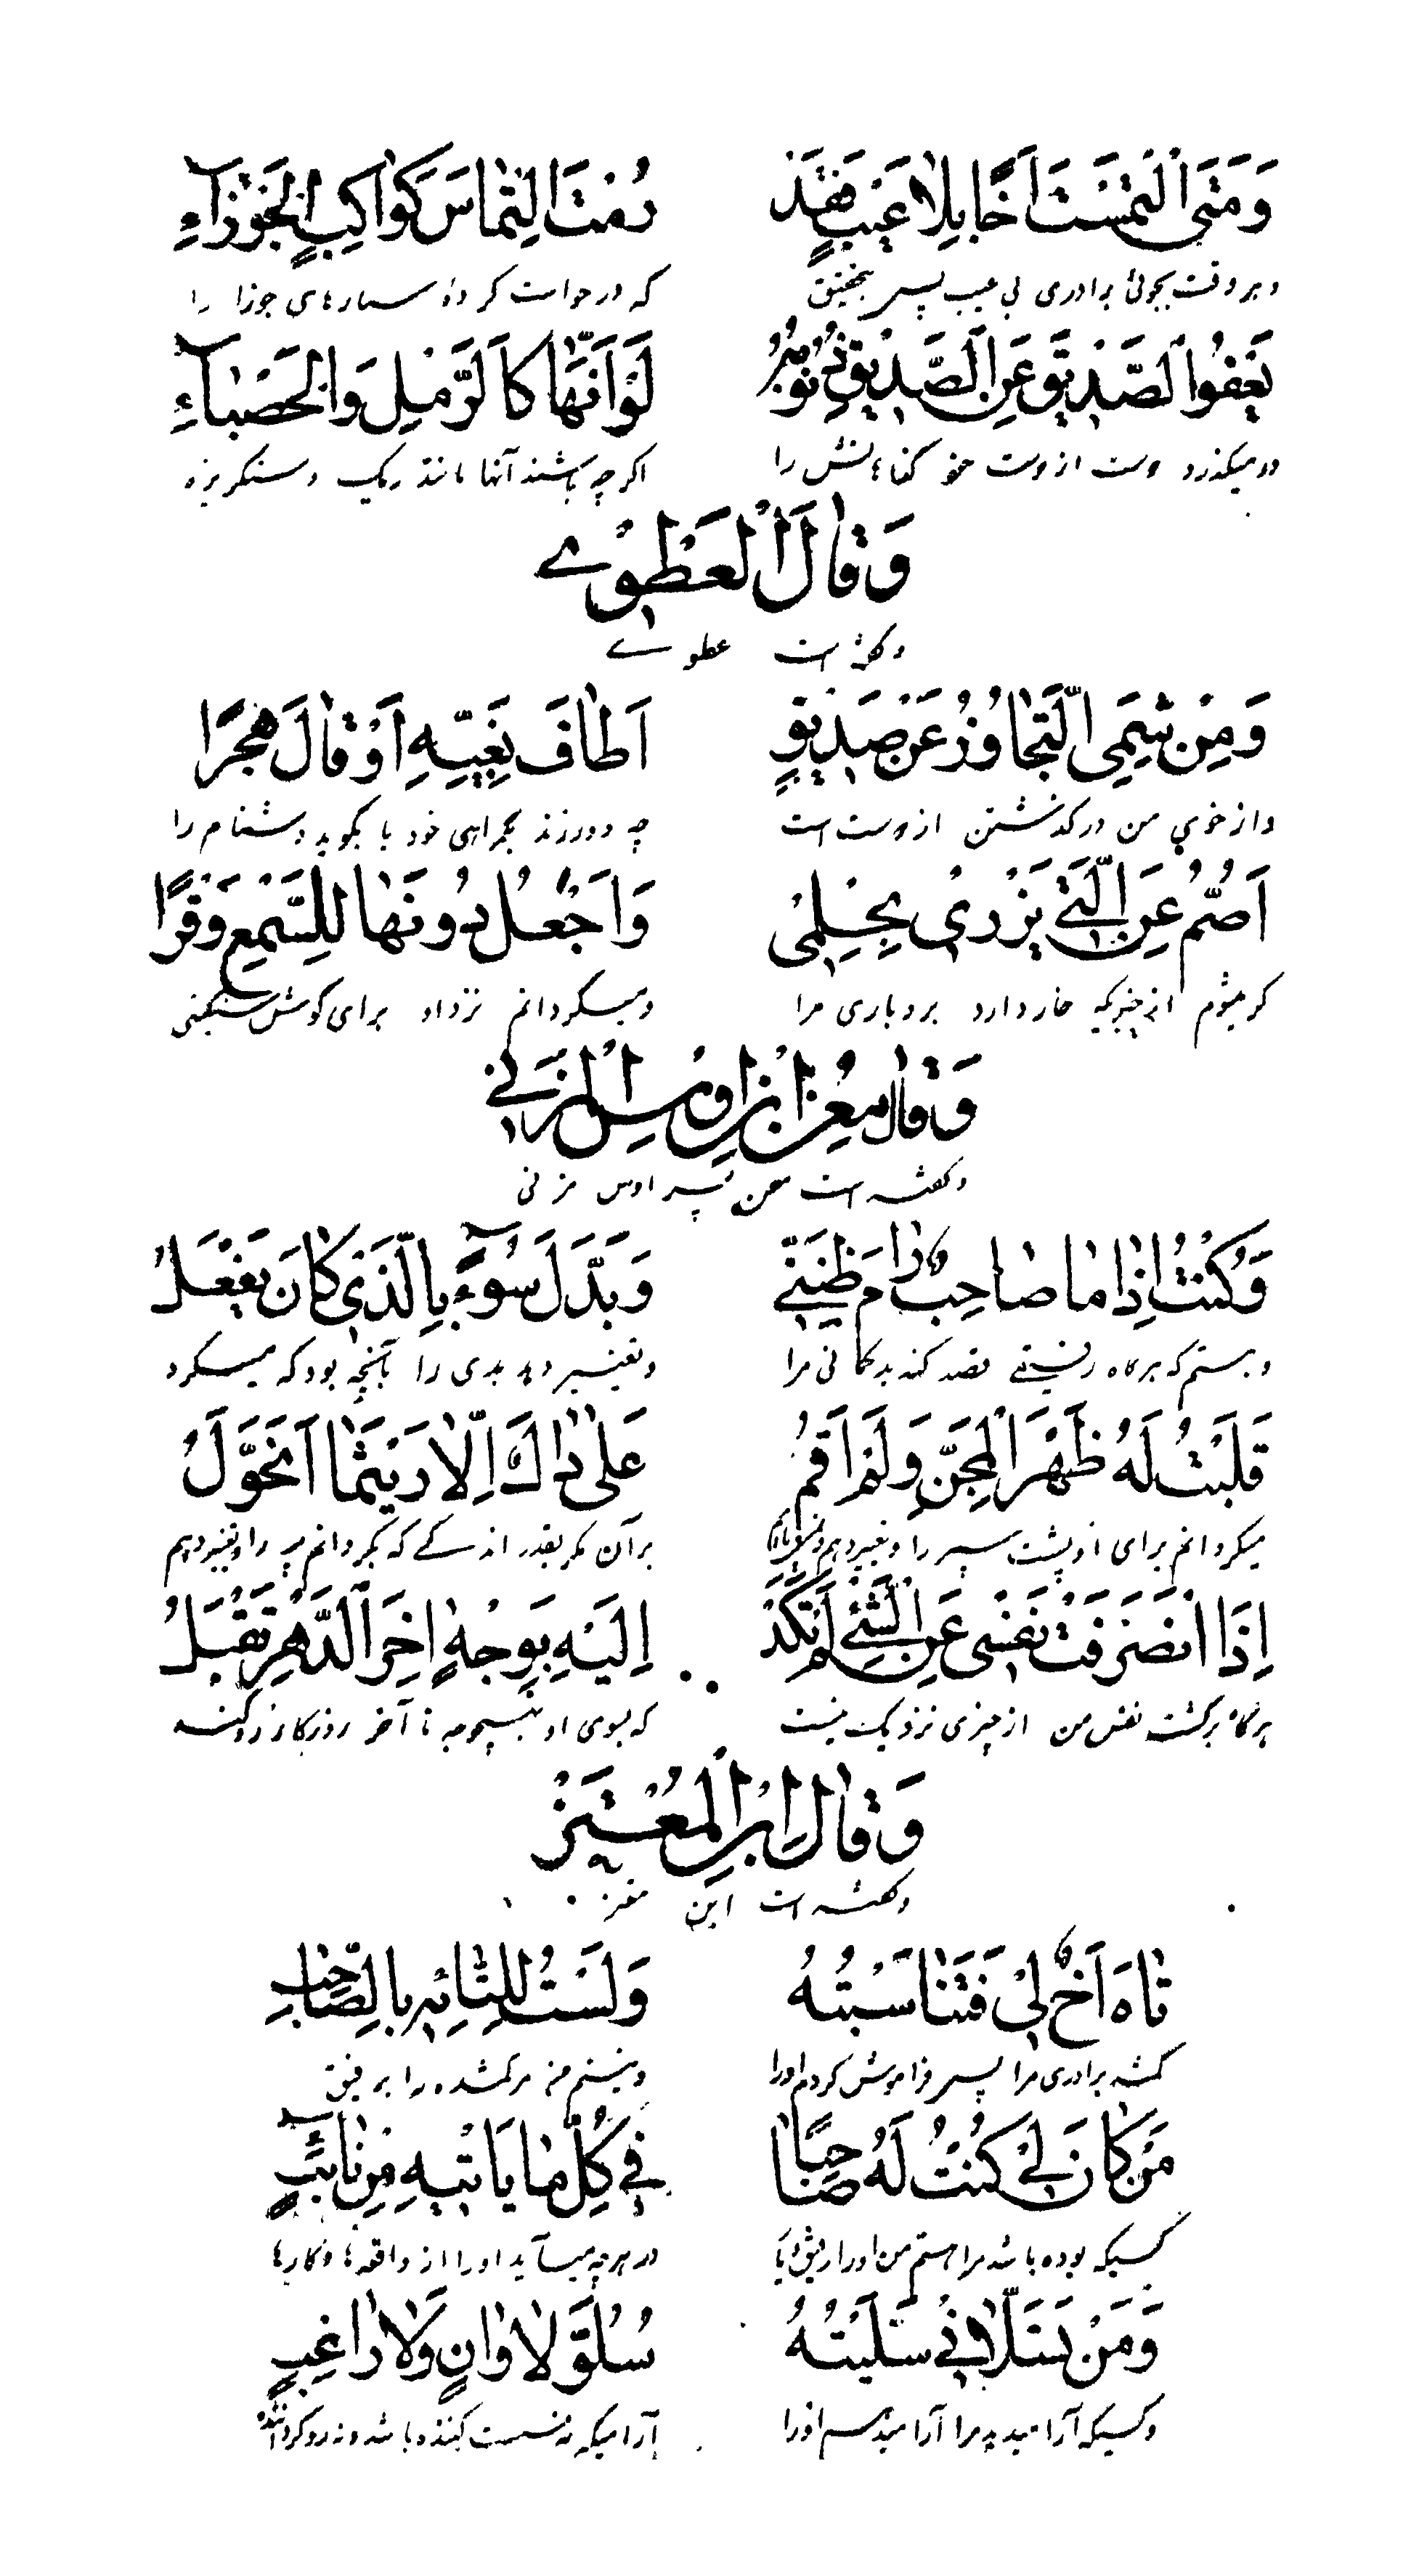 وَمَتَى الْتَمَسْتَ اَخًا بِلَا عَيْبٍ فَقَدْ رُمْتَ الْتِمَاسَ كَوَاكِبِ الْجَوْزَآءِ
وهر وقت بجوئی برادری بی عیب پس بتحقیق که درخواست کردهٔ ستارهای جوزا را
يَعْفُو الصَّدِيقُ عَنِ الصَّدِيقِ ذُنُوبَهُ لَوْ اَنَّهَا كَالرَّمْلِ وَالْحَصْبَآءِ
درمیکذرد دوست از دوست خود کناهانش را اکرچه باشند آنها مانند ریک و سنکریزه
وَقَالَ الْعَطَوِيُّ
وکفته است عطوی
وَمِنْ شِيَمِي التَّجَاوُزُ عَنْ صَدِيقٍ اَطَافَ بِغَيِّهِ اَوْ قَالَ هُجْرًا
واز خوی من درکذشتن از دوست است چه دور زند بکمراهی خود یا بکوید دشنام را
اَصُمُّ عَنِ الَّتِي تَزْرِي بِحِلْمِي وَاَجْعَلُ دُونَهَا لِلسَّمْعِ وَقْرًا
کر میشوم از چیزیکه خار دارد بردباری مرا ومیکردانم نزد او برای کوش سنکینی
وَقَالَ مَعْنُ ابْنُ اَوْسٍ الْمُزَنِي
وکفته است معن پسر اوس مزنی
وَكُنْتُ اِذَا مَا صَاحِبٌ رَامَ ظِنَّتِي وَبَدَّلَ سُوءً بِالَّذِي كَانَ يَفْعَلُ
وهستم که هرکاه رفیقی قصد کند بدکمانی مرا وتغییر دهد بدی را بآنچه بود که میکرد
قَلَبْتُ لَهُ ظَهْرَ الْمِجَنِّ وَلَمْ اَقُمْ عَلَى ذَاكَ اِلَّا رَيْثَمَا اَتَحَوَّلُ
میکردانم برای او پشت سپر را بر آن مکر بقدر اندکی که بکردانم
اِذَا انْصَرَفَتْ نَفْسِي عَنِ الشَّيْءِ لَمْ تَكَدْ اِلَيْهِ بِوَجْهٍ اٰخِرَ الدَّهْرِ تُقْبِلُ
هرکاه برکشت نفس من از چیزی نزدیک نیست که بسوی او بهیچوجه تا آخر روزکار رو کند
وَقَالَ ابْنُ الْمُعْتَزِّ
وکفته است ابن معتز
تَاهَ اَخٌ لِي فَتَنَاسَيْتُهُ وَلَسْتُ لِلتَّائِهِ بِالصَّاحِبِ
کمشد برادری مرا پس فراموش کردم اورا ونیستم من مر کمشده را بر فیق
مَنْ كَانَ لِي كُنْتُ لَهُ صَاحِبًا فِي كُلِّ مَا يَأْتِيهِ مِنْ نَائِبٍ
کسیکه بوده باشد مرا هستم من اورا رفیق در هرچه میآید اورا از واقعها وکارها
وَمَنْ تَسَلَّانِي تَسَلَّيْتُهُ سُلُوَّ لَا وَانٍ وَلَا رَاغِبٍ
وکسیکه آرام میدهد مرا آرام میدهم اورا آرامیکه نه سست کننده باشد ونه رو کرداننده